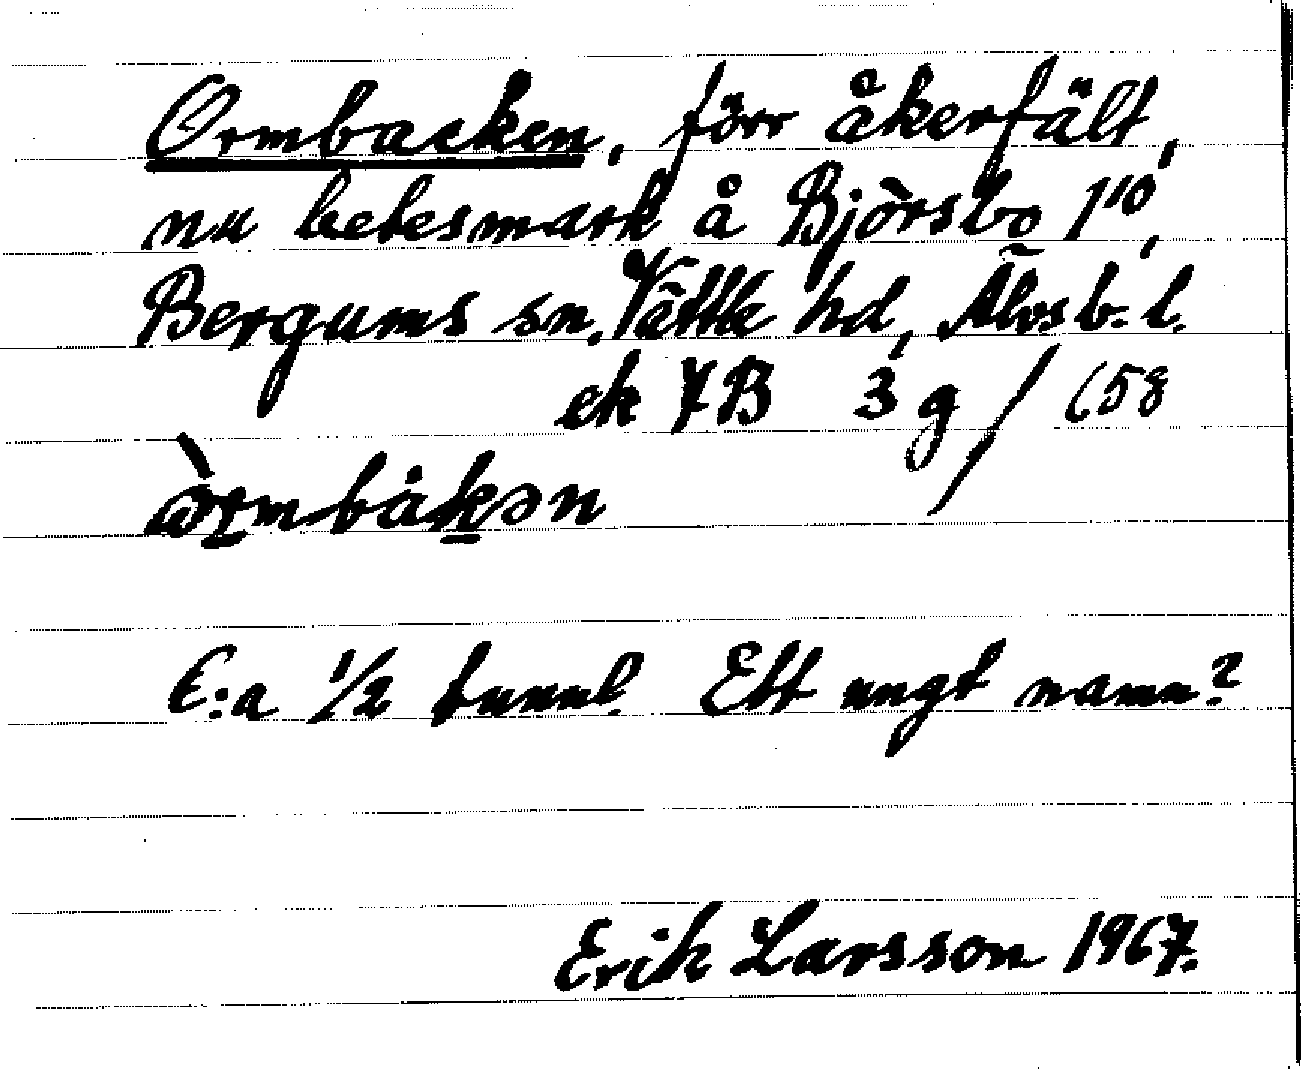 Ormbacken, förr åkerfält,
nu betesmark å Björsbo 1¹⁰,
Bergums sn, Vättle hd, Älvsb. l.
ek 7B 3 g / 658
òrmbakən
C:a 1/2 tunnl. Ett ungt namn?
Erik Larsson 1967.